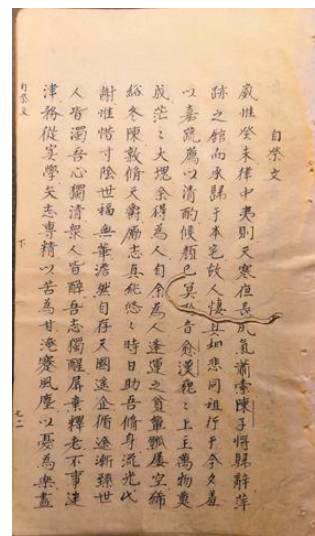 自祭文
歲惟癸未律中夷則天寒夜長風氣蕭索陳子將歸辭萍
跡之館而永歸于本宅故人悽其相悲同祖行于今夕羞
以嘉蔬薦以清酌候顏已冥音愈漠穆〻上主萬物
成茫〻大塊余得為人自余為人逢運之貧簞瓢屢空絺
綌冬陳敦脩天爵勵志真純悠〻時日助吾脩身流光代
謝惟惜寸陰世福無華澹然自存天國遙企循途漸臻世
人皆濁吾心獨清衆人皆醉吾志獨醒屏棄釋老不事迷
津務從實學矢志專精以苦為甘淹蹇風塵以憂為樂盡
自祭文 下 七二